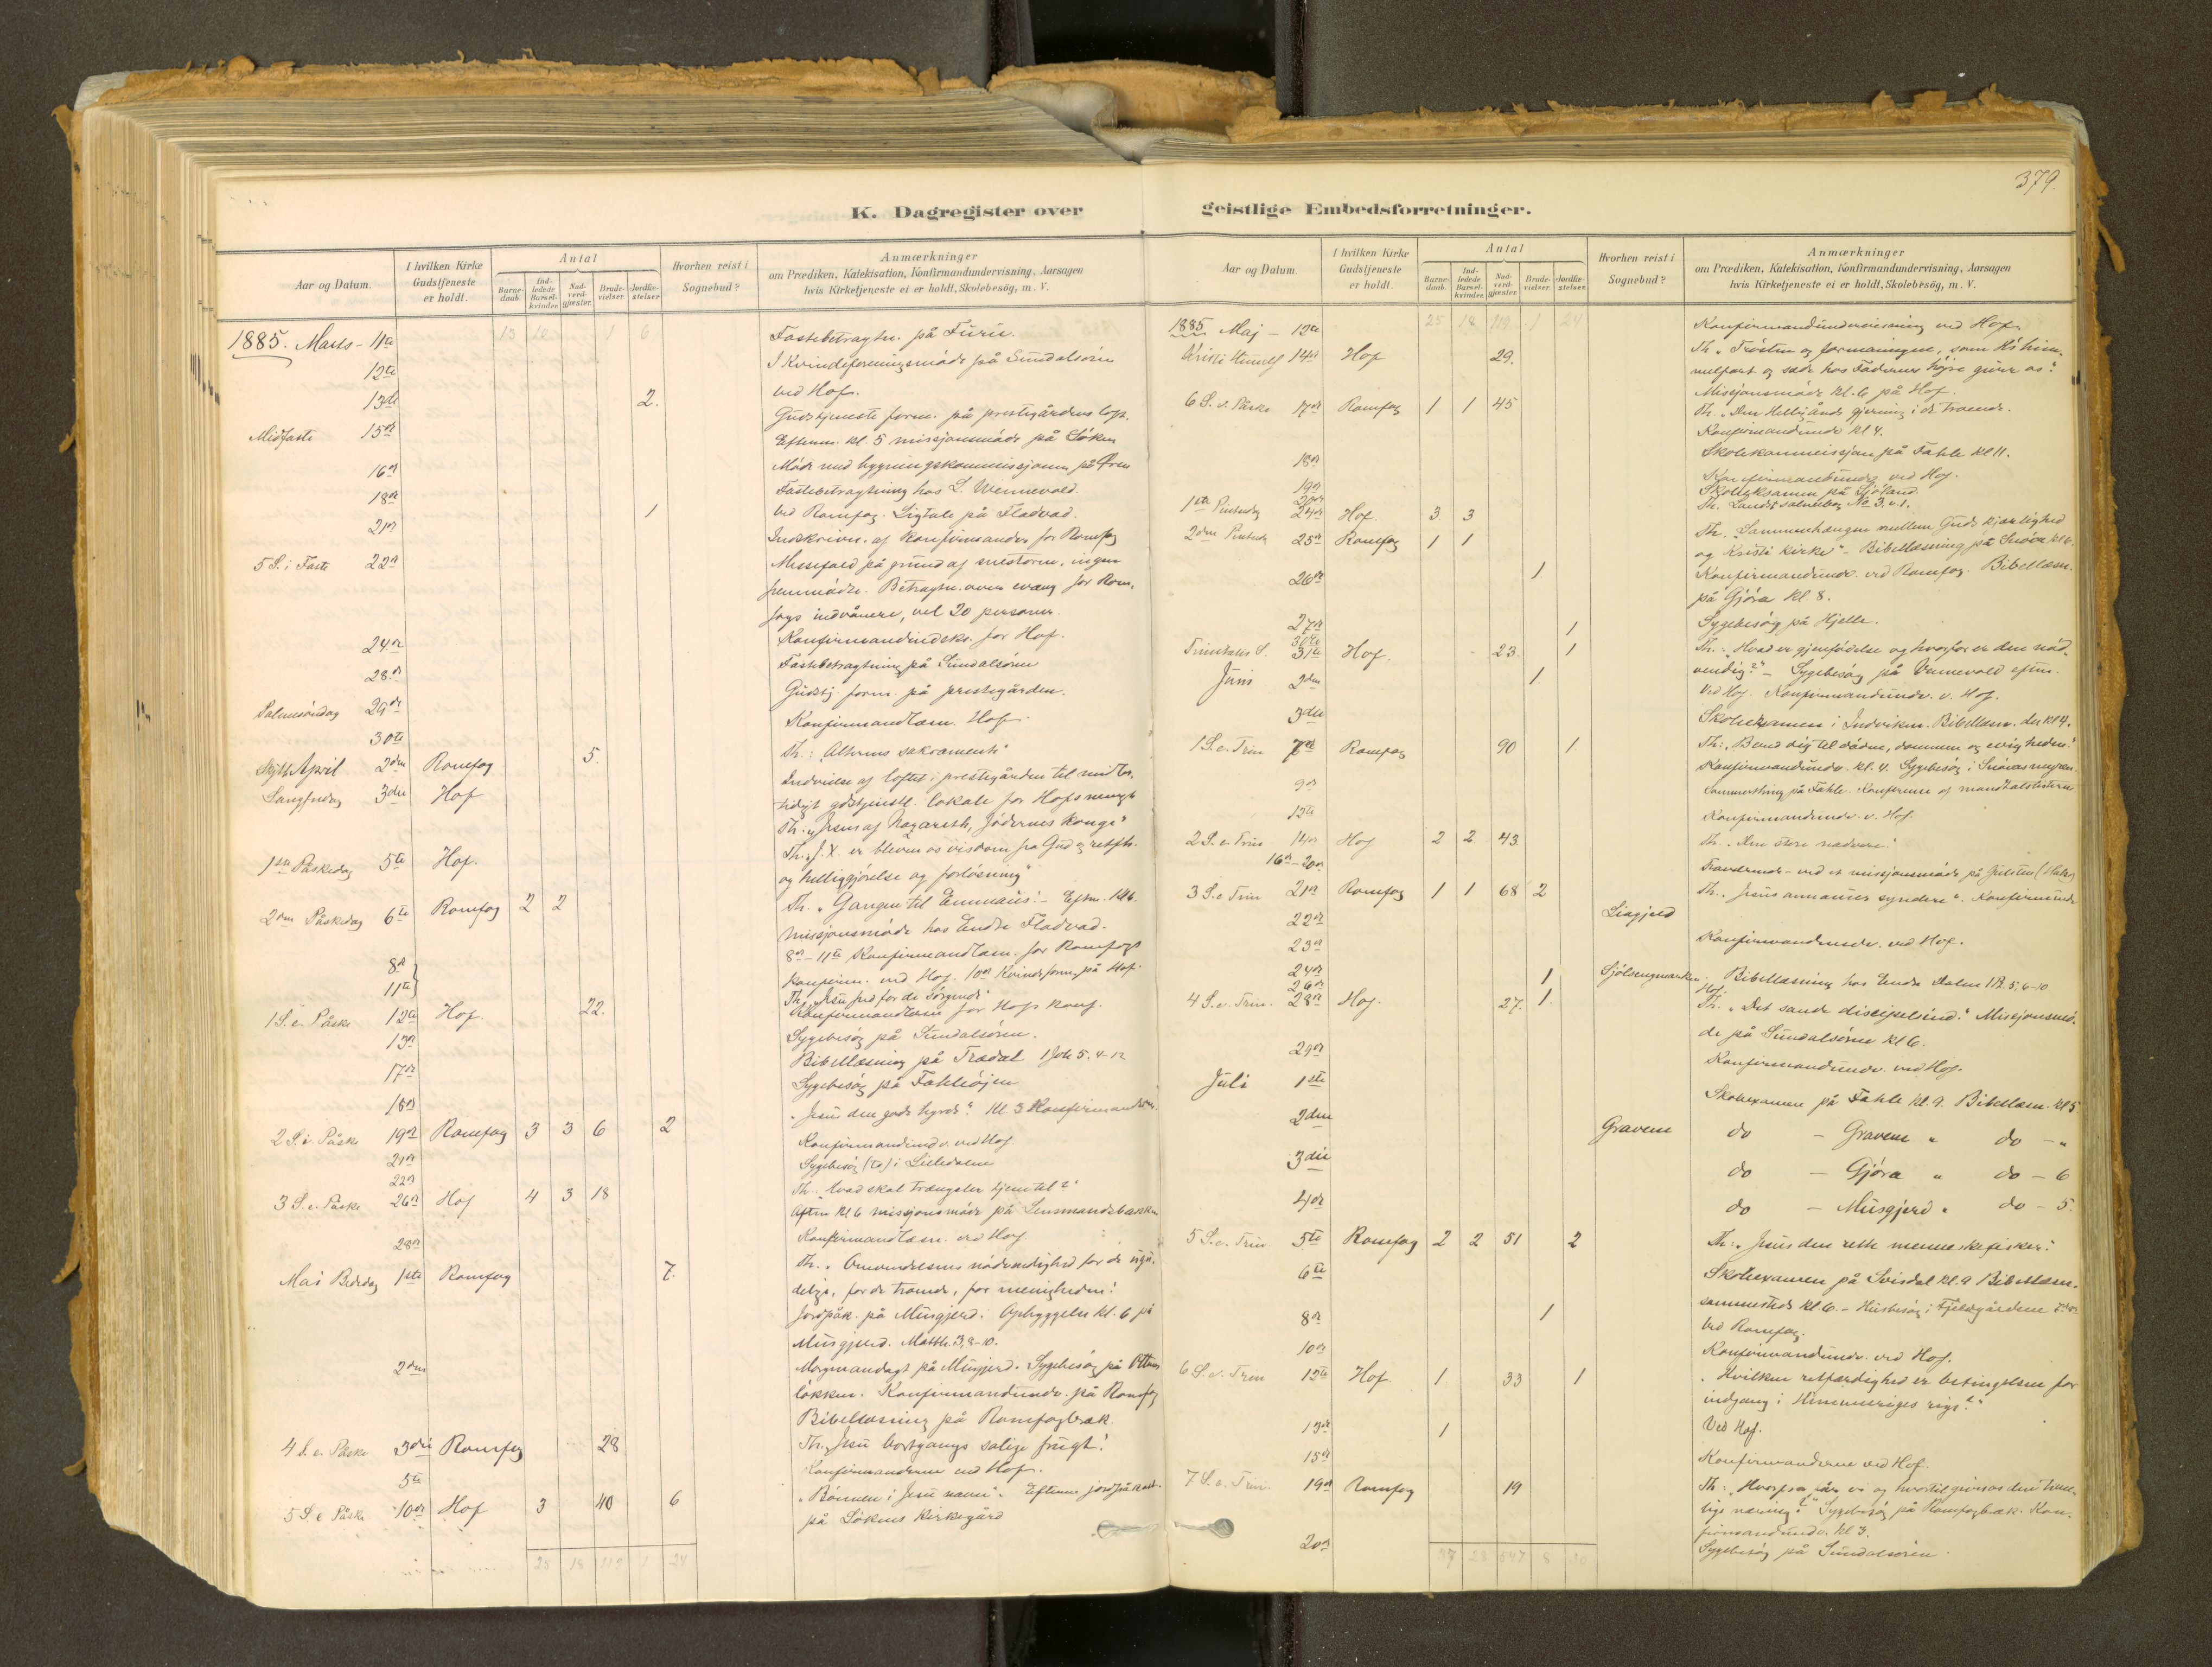 379.
K. Dagregister over geistlige Embedsforretninger.
Aar og Datum.
I hvilken Kirke Gudstjeneste er holdt.
Antal
Barne-daab.
Ind-ledede Barsel-kvinder.
Nad-verd-gjæster.
Brude-vielser.
Jordfæ-stelser.
Hvorhen reist i Sognebud?
Anmærkninger
om Prædiken, Katekisation, Konfirmandundervisning, Aarsagen
hvis Kirketjeneste ei er holdt, Skolebesög, m. V.
13 10 1 6
1885. Marts - 11te Fastebetragtn. på Furu.
12te I Kvindeforeningsmöde på Sundalsören
13de 2. ved Hof.
Midfaste 15de Gudstjeneste form. på prestegårdens loft.
Eftern. kl. 5 missjonsmöde på Löken
16de Möde med bygningskommissjonen på Ören
18de Fastebetragtning hos L. Wennevold.
21de 1 ved Romfog. Ligtale på Fladvad.
5 S. i Faste 22de Indskrivn. af konfirmander for Romfog
Messefald på grund af snestorm, ingen
fremmödte. Betragtn. over evang. for Rom-
fogs indvånere, vel 20 personer.
24de Konfirmandindskr. for Hof.
28de Fastebetragtning på Sundalsören
Palmesöndag 29de Gudstj. form. på prestegården.
30te Konfirmandlæsn. Hof.
April 2den Romfog 5. Th.: "Alterens sakramente"
Langfredag 3die Hof Indvielse af loftet i prestegården til midler-
tidigt gdstjenestl. lokale for Hofs menigh
Th. "Jesus af Nazareth, Jödernes konge"
1ste Påskedag 5te Hof. Th. "J. X. er bleven os visdom fra Gud og retfh.
og helliggjörelse og forlösning"
2den Påskedag 6te Romfog 2 2 Th. "Gangen til Emmaus". - Eftm. kl 6.
missjonsmöde hos Endre Fladvad.
8de 11te 8de - 11te Konfirmandlæsn. for Romfogs
konfirm. ved Hof. 10de Kvindeforng. på Hof.
1 S. e. Påske 12te Hof. 22. Th. "Jesu fred for de sörgende"
13de Konfirmandlæsn for Hofs konf.
Sygebesög på Sundalsören.
17de Bibellæsning på Trædal 1 Joh 5. 4-12
18de Sygebesög på Fahlehöjen
2 S. e. Påske 19de Romfog 3 3 6 2 "Jesus den gode hyrde". Kl 3 Konfirmanderne.
21de Konfirmandundv. ved Hof
22de Sygebesög (to) i Lilledalen
3 S. e. Påske 26de Hof 4 3 18 Th. "Hvad skal trængsler tjene til?"
Aften kl 6 missjonsmöde på Lensmandsbakken
28de Konfirmandlæsn. ved Hof
Mai Bededag 1ste Romfog 7. Th. "Omvendelsens nödvendighed for de ugu-
delige, for de troende, for menigheden".
Jordpåk. på Musgjerd. Opbyggelse kl. 6 på
Musgjerd. Matth. 3, 8-10.
2den Morgenandagt på Musgjerd. Sygebesög på
lökken. Konfirmandundv. på Romfog
Bibellæsning på Romfogbræk.
4 S. e. Påske 3die Romfog 28 Th. "Jesu bortgangs salige frugt".
5te Konfirmanderne ved Hof.
5 S. e. Påske 10de Hof 3 40 6 "Bönnen i Jesu navn". Efterm. jordpåkast.
på Lökens Kirkegård
25 18 119 1 24
Aar og Datum.
I hvilken Kirke Gudstjeneste er holdt.
Antal
Barne-daab.
Ind-ledede Barsel-kvinder.
Nad-verd-gjæster.
Brude-vielser.
Jordfæ-stelser.
Hvorhen reist i Sognebud?
Anmærkninger
om Prædiken, Katekisation, Konfirmandundervisning, Aarsagen
hvis Kirketjeneste ei er holdt, Skolebesög, m. V.
25 18 119 1 24
1885 Maj - 12te Konfirmandundervisning ved Hof.
Kristi Himelf 14de Hof 29. Th. "Trösten og formaningen, som Kr. him-
melfart og sæde hos Faderens höjre giver os".
Missjonsmöde kl. 6 på Hof.
6 S. e. Påske 17de Romfog 1 1 45 Th. "Den Helligånds gjerning i de troende.
Konfirmandundv kl 4.
18de Skolekommissjon på Fahle kl 11.
19de Konfirmandundv ved Hof.
Skoleeksamen på
1ste Pintsedag 24de Hof. 3 3 Th. Landst. salmebog No 3. v. 1.
2den Pintsed. 25de Romfog 1 1 Th. "Sammenhængen mellem Guds kjærlighed
og Kristi kirke" - Bibellæsning på Snöva kl 6.
26de 1 Konfirmandundv. ved Romfog. Bibellæsn.
på Gjöra kl 8.
27de 1 Sygebesög på Hjelle.
30te
Trinitatis S. 31te Hof. 23. 1 Th.: "Hvad er gjenfödelse og hvorfor er den nöd-
vendig?" - Sygebesög på Vennevold eftm.
Juni 2den 1 Ved Hof. Konfirmandundv. v. Hof.
3die Skoleeksamen i Indviken. Bibellæsn. der kl 4.
1 S. e. Trin 7de Romfog 90 1 Th: "Bered dig til döden, dommen og evigheden".
Konfirmandundv. kl. 4. Sygebesög i
9de på Fahle. Konferense af mandtalslisterne
12te Konfirmandundv. v. Hof.
2 S. e. Trin 14de Hof 2 2 43. Th. "Den store nadvere".
16de-20de - ved et missjonsmöde på
3 S. e. Trin 21de Romfog 1 1 68 2 Th. "Jesus annammer syndere". Konfirmundv
22de Liagjerd
23de Konfirmandundv. ved Hof.
24de 1
26de Bibellæsning hos Endre
4 S. e. Trin. 28de Hof. 27. 1. Th. "Det sande discipelsind". Missjonsmö-
de på Sundalsören kl 6.
29de Konfirmandundv. ved Hof.
Juli 1ste Skoleexamen på Fahle kl. 9. Bibellæsn. kl 5
2den Gravem do - Gravem " do - "
3die do - Gjöra " do - 6
4de do - Musgjerd " do - 5.
5 S. e. Trin. 5te Romfog 2 2 51 2 Th: "Jesus den rette menneskefisker".
6te Skoleexamen på Svisdal kl. 9 Bibellæsn.
sammesteds kl 6. - Husbesög i Fjeldgårdene
8de 1 Ved Romfog.
10de Konfirmandundv. ved Hof.
6 S. e. Trin 12te Hof. 1 33 1 "Hvilken retfærdighed er betingelsen for
indgang i Himmeriges rige?"
13de 1 Ved Hof.
15de Konfirmanderne ved Hof.
7 S. e. Trin. 19de Romfog 19 Th: "Hvorfra får vi og hvortil gives os den time-
lige næring?" Sygebesög på Romfogbræk. Kon-
firmandundv. kl 3.
20de Sygebesög på Sundalsören.
37 28 547 8 30